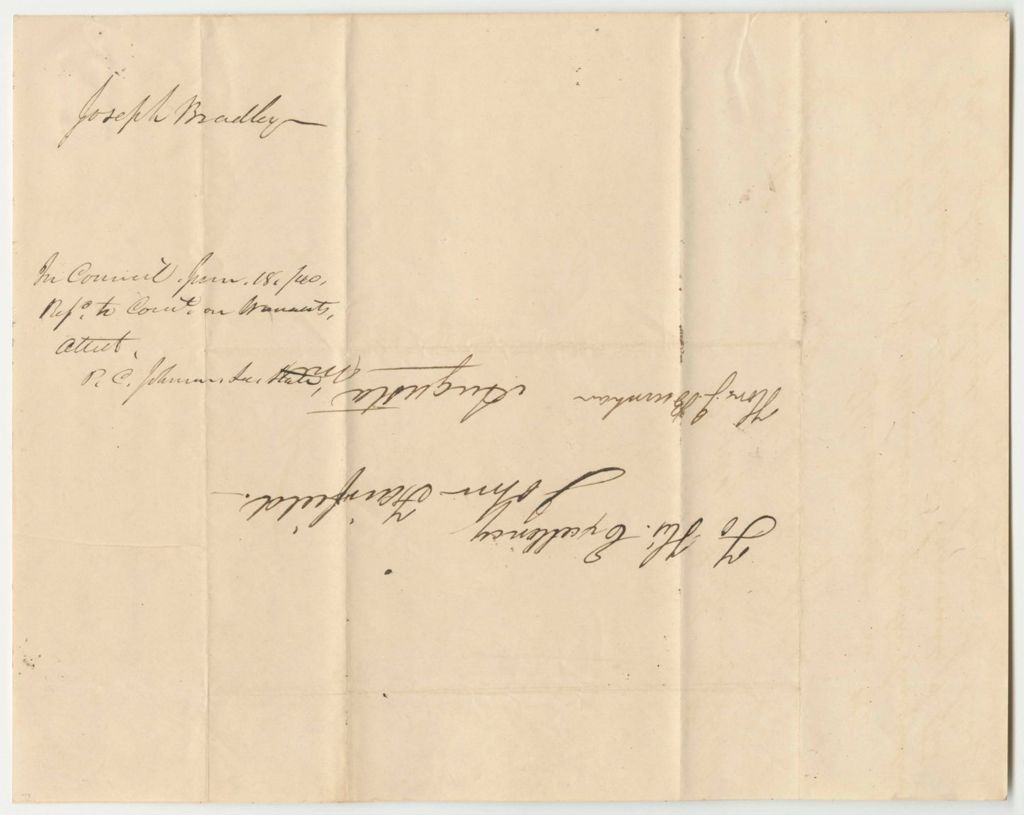 Joseph Bradley
In Council Jan. 18. 1840.
Ref.d to Com.e on Warrants,
Attest,
P. C. Johnson Sec State
To His Excellency
John Fairfield.
Augusta
Hon. J. Burnham